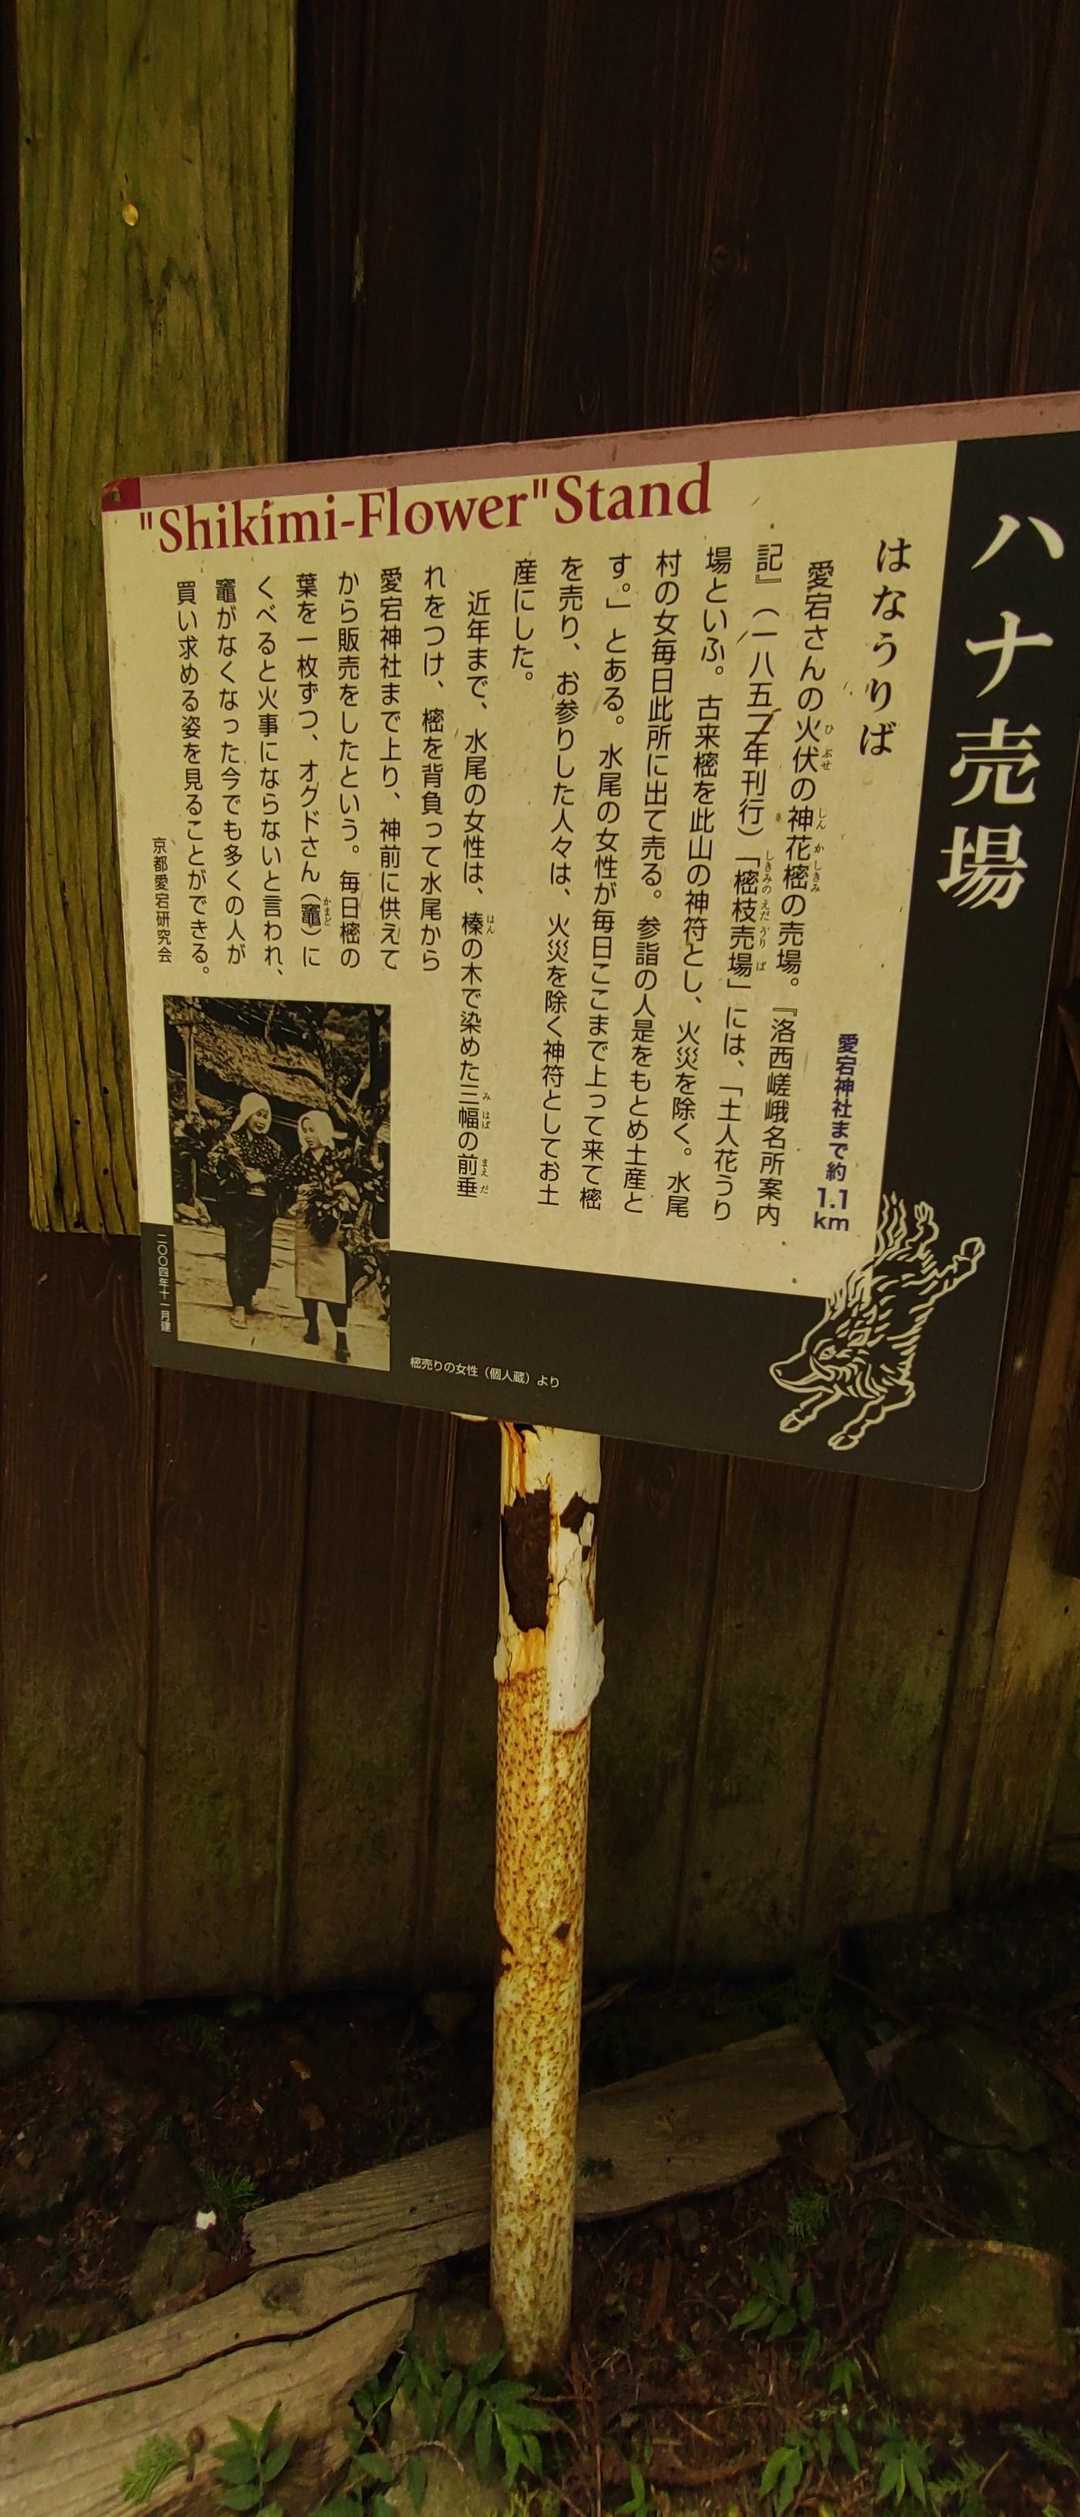 "Shikimi-Flower"Stand
ハナ売場
はなうりば
愛宕神社まで約1.1km
愛宕さんの火伏の神花樒の売場。『洛西嵯峨名所案内
記』（一八五二年刊行）「樒枝売場」には、「土人花うり
場といふ。古来樒を此山の神符とし、火災を除く。水尾
村の女毎日此所に出て売る。参詣の人是をもとめ土産と
す。」とある。水尾の女性が毎日ここまで上って来て樒
を売り、お参りした人々は、火災を除く神符としてお土
産にした。
近年まで、水尾の女性は、榛の木で染めた三幅の前垂
れをつけ、樒を背負って水尾から
愛宕神社まで上り、神前に供えて
から販売をしたという。毎日樒の
葉を一枚ずつ、オクドさん（竈）に
くべると火事にならないと言われ、
竈がなくなった今でも多くの人が
買い求める姿を見ることができる。
京都愛宕研究会
二〇〇四年十一月建
樒売りの女性（個人蔵）より